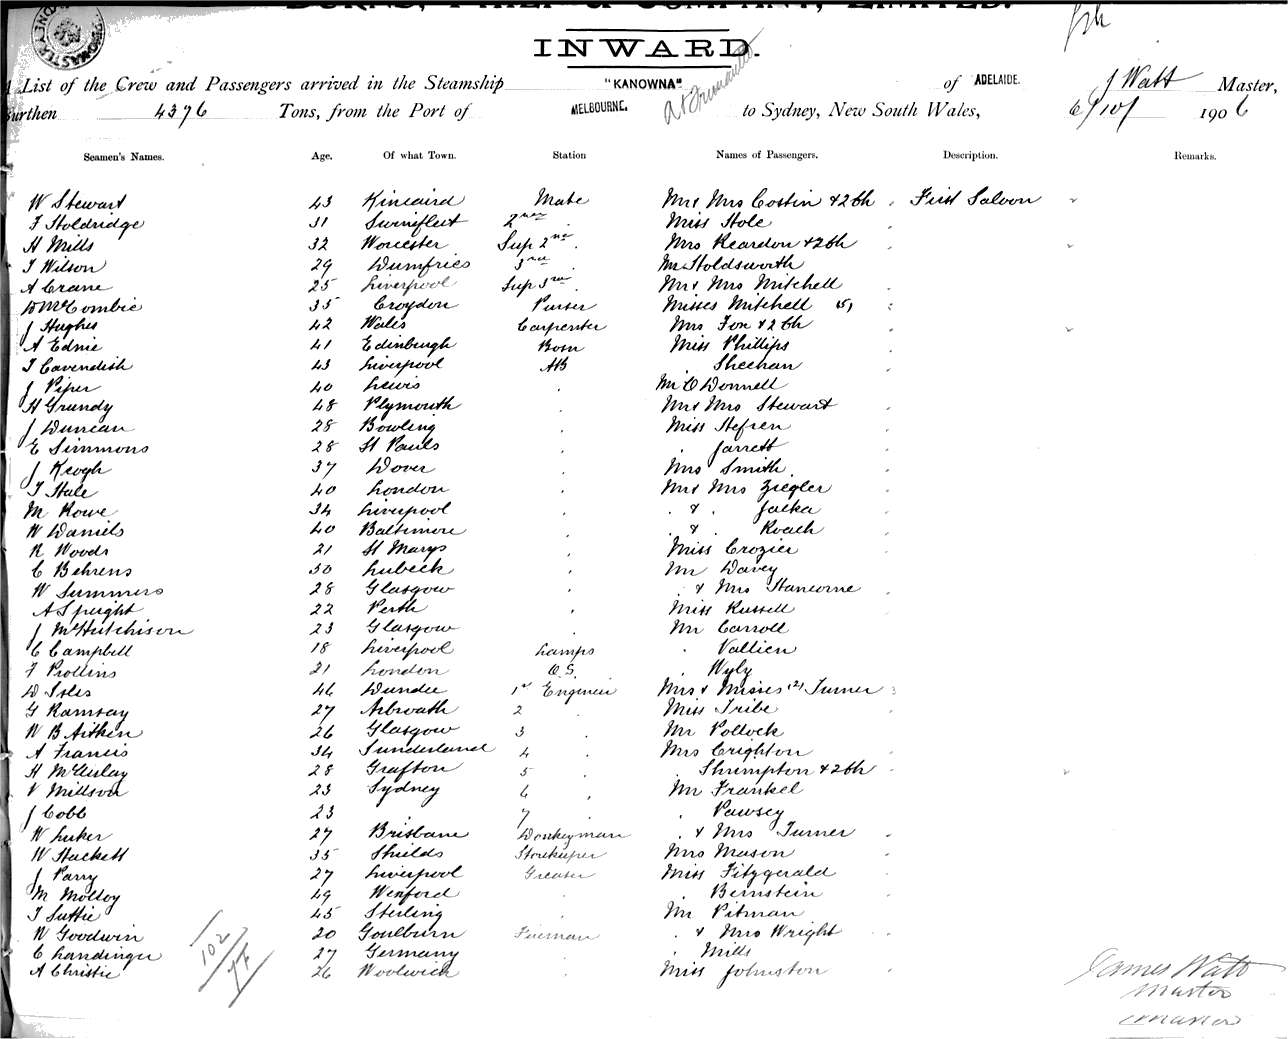 BURNS, PHILP & COMPANY, LIMITED.
INWARD.
A List of the Crew and Passengers arrived in the Steamship "KANOWNA" of ADELAIDE. J Watt Master,
Burthen 4376 Tons, from the Port of MELBOURNE. to Sydney, New South Wales, 6/10/ 1906
Seamen's Names. Age. Of what Town. Station Names of Passengers. Description. Remarks.
W Stewart 43 Kincaird Mate Mr & Mrs Costin & 2 ch First Saloon
F Holdridge 31 Swinefleet 2nd Miss Hole
H Mills 32 Worcester Sup 2nd Mrs Reardon & 2 ch
T Wilson 29 Dumfries 3rd Mr Holdsworth
A Crane 25 Liverpool Sup 3rd Mr & Mrs Mitchell
D McCombie 35 Croydon Purser Misses Mitchell (5)
J Hughes 42 Wales Carpenter Mrs Fox & 2 ch
A Ednie 41 Edinburgh Bosn Miss Phillips
T Cavendish 43 Liverpool AB Sheehan
J Piper 40 Lewis Mr O'Donnell
H Grundy 48 Plymouth Mr & Mrs Stewart
J Duncan 28 Bowling Miss Hefren
E Simmons 28 St Pauls Jarrett
J Keogh 37 Dover Mrs Smith
T Hale 40 London Mr & Mrs Ziegler
M Rowe 34 Liverpool . & . Jacka
W Daniels 40 Baltimore . & . Roach
R Woods 21 St Marys Miss Crozier
C Behrens 30 Lubeck Mr Davey
W Summers 28 Glasgow . & Mrs Hancorne
A Speight 22 Perth Miss Russell
J McHutchison 23 Glasgow Mr Carroll
C Campbell 18 Liverpool Lamps . Vallien
F Prollins 21 London O.S. . Wyly
D Isles 46 Dundee 1st Engineer Mrs & Misses (2) Turner
G Ramsay 27 Arbroath 2 Miss Tribe
W B Aitken 26 Glasgow 3 Mr Pollock
A Francis 34 Sunderland 4 Mrs Crighton
H McAulay 28 Grafton 5 . Shrimpton & 2 ch
V Millson 23 Sydney 6 Mr Frankel
J Cobb 23 . 7 . Pawsey
W Luker 27 Brisbane Donkeyman . & Mrs Turner
W Hackett 35 Shields Storekeeper Mrs Mason
J Parry 27 Liverpool Greaser Miss Fitzgerald
M Molloy 49 Wexford . Bernstein
T Suttie 45 Sterling Mr Pitman
W Goodwin 20 Goulburn Fireman . & Mrs Wright
C Landinger 27 Germany . Mills
A Christie 26 Woolwich Miss Johnston
102/
James Watt
Master